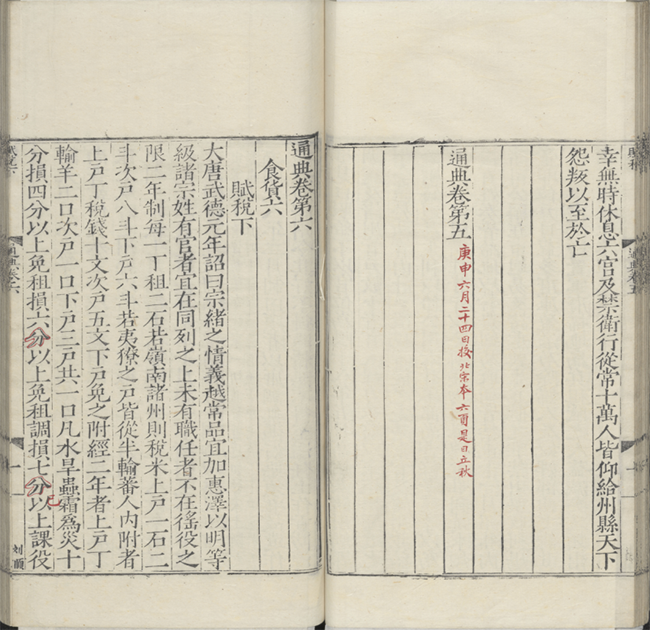 幸無時休息六宮及禁衛行從常十萬人皆仰給州縣天下
怨叛以至於亡
通典卷第五
庚申六月二十四日挍北宋本六葉是日立秋
通典卷第六
食貨六
賦稅下
大唐武德元年詔曰宗緒之情義越常品宜加惠澤以明等
級諸宗姓有官者宜在同列之上未有職任者不在徭役之
限二年制每一丁租二石若嶺南諸州則稅米上戶一石二
斗次戶八斗下戶六斗若夷獠之戶皆從半輸蕃人內附者
上戶丁稅錢十文次戶五文下戶免之附經二年者上戶丁
輸羊二口次戶一口下戶三戶共一口凡水旱蟲霜為災十
分損四分以上免租損六分以上免租調損七分以上課役